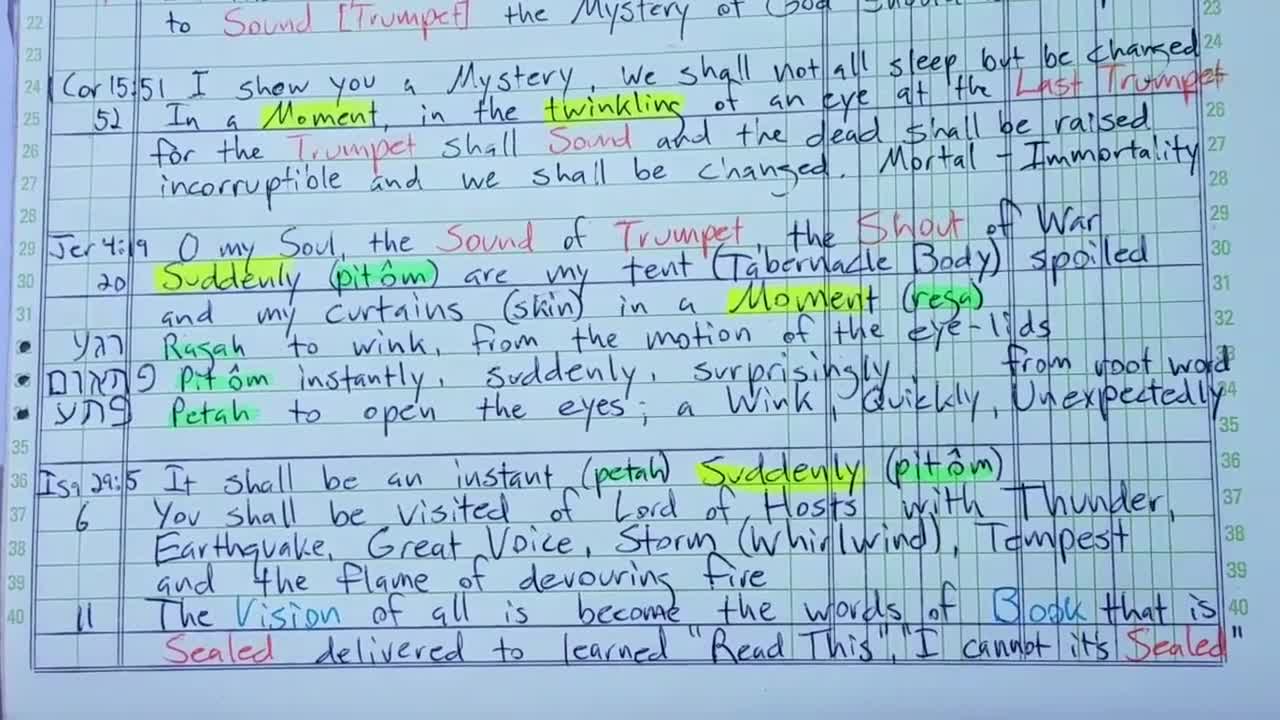 22 to Sound [Trumpet] the Mystery of God 23
23 24
24 Cor 15:51 I show you a Mystery, we shall not all sleep but be changed
25 52 In a Moment, in the twinkling of an eye at the Last Trumpet 26
26 for the Trumpet shall Sound and the dead shall be raised 27
27 incorruptible and we shall be changed. Mortal - Immortality 28
28 29
29 Jer 4:19 O my Soul, the Sound of Trumpet, the Shout of War 30
30 20 Suddenly (pitôm) are my tent (Tabernacle Body) spoiled 31
31 and my curtains (skin) in a Moment (rega) 32
רגע Ragah to wink, from the motion of the eye-lids
פתאום Pitôm instantly, suddenly, surprisingly, from root word
פתע Petah to open the eyes; a Wink, Quickly, Unexpectedly
35 35
36 Isa 29:5 It shall be an instant (petah) Suddenly (pitôm) 36
37 6 You shall be visited of Lord of Hosts with Thunder, 37
38 Earthquake, Great Voice, Storm (Whirlwind), Tempest 38
39 and the flame of devouring fire 39
40 11 The Vision of all is become the words of Book that is 40
Sealed delivered to learned "Read This", "I cannot it's Sealed"